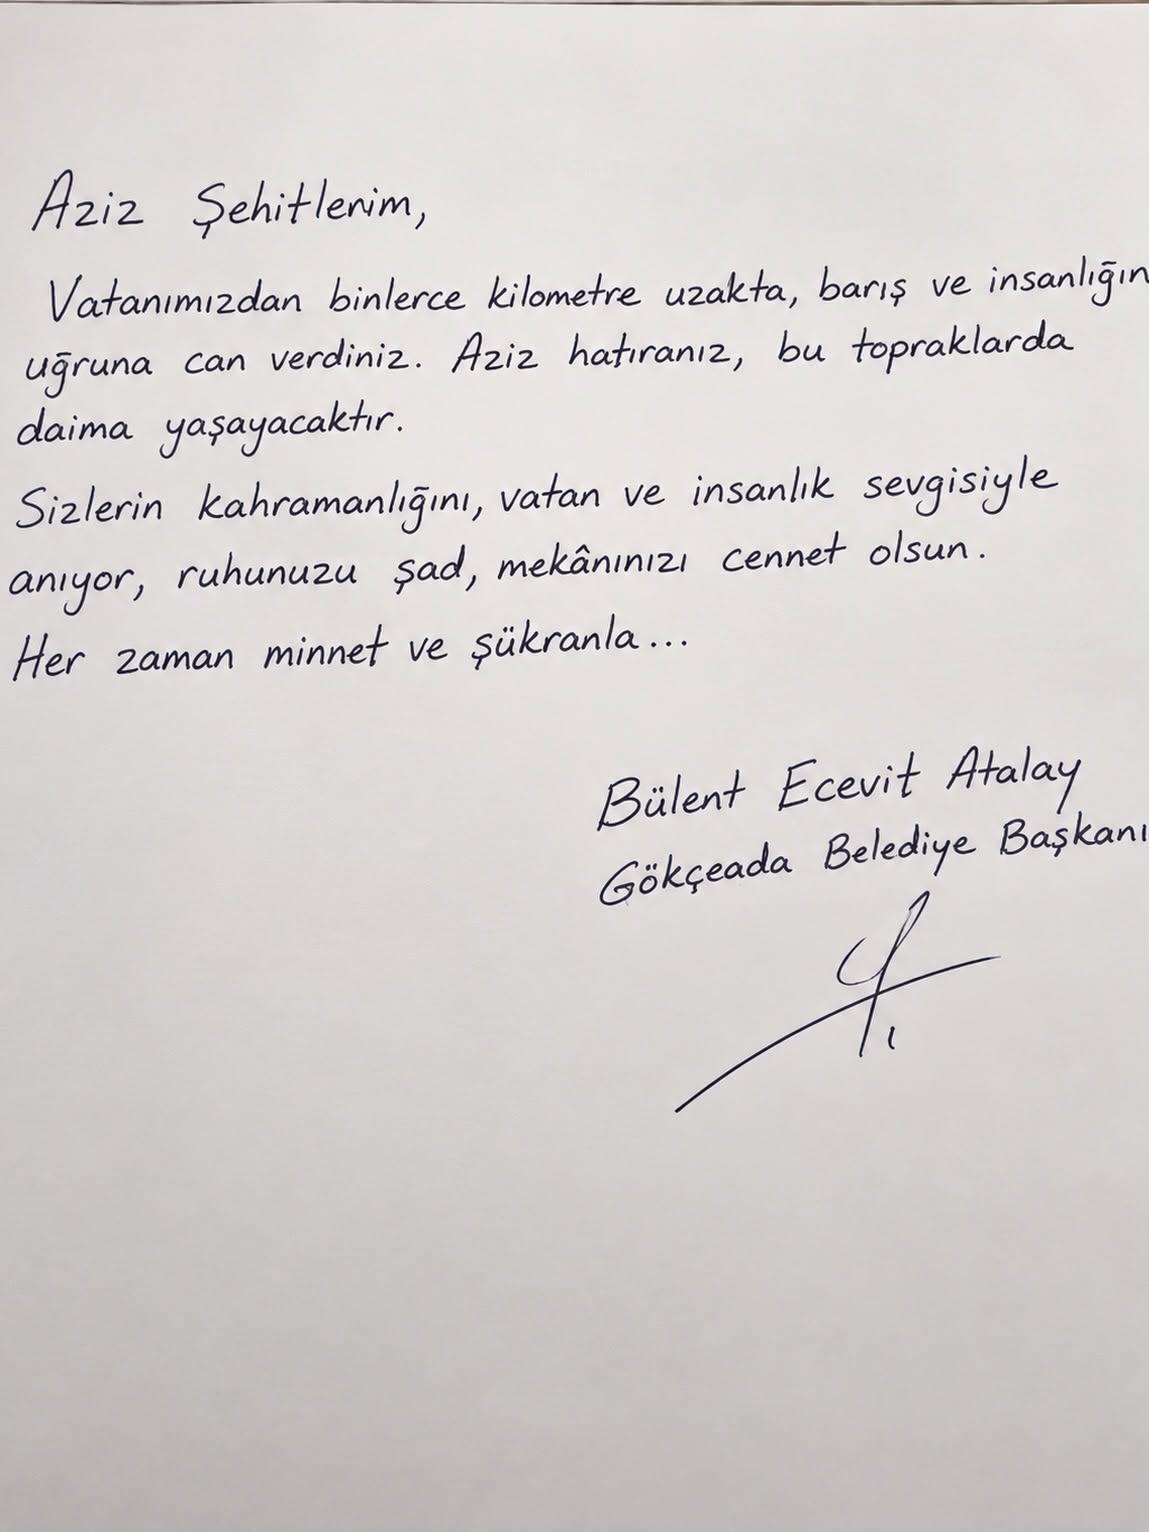 Aziz Şehitlerim,
Vatanımızdan binlerce kilometre uzakta, barış ve insanlığın
uğruna can verdiniz. Aziz hatıranız, bu topraklarda
daima yaşayacaktır.
Sizlerin kahramanlığını, vatan ve insanlık sevgisiyle
anıyor, ruhunuzu şad, mekânınızı cennet olsun.
Her zaman minnet ve şükranla...
Bülent Ecevit Atalay
Gökçeada Belediye Başkanı